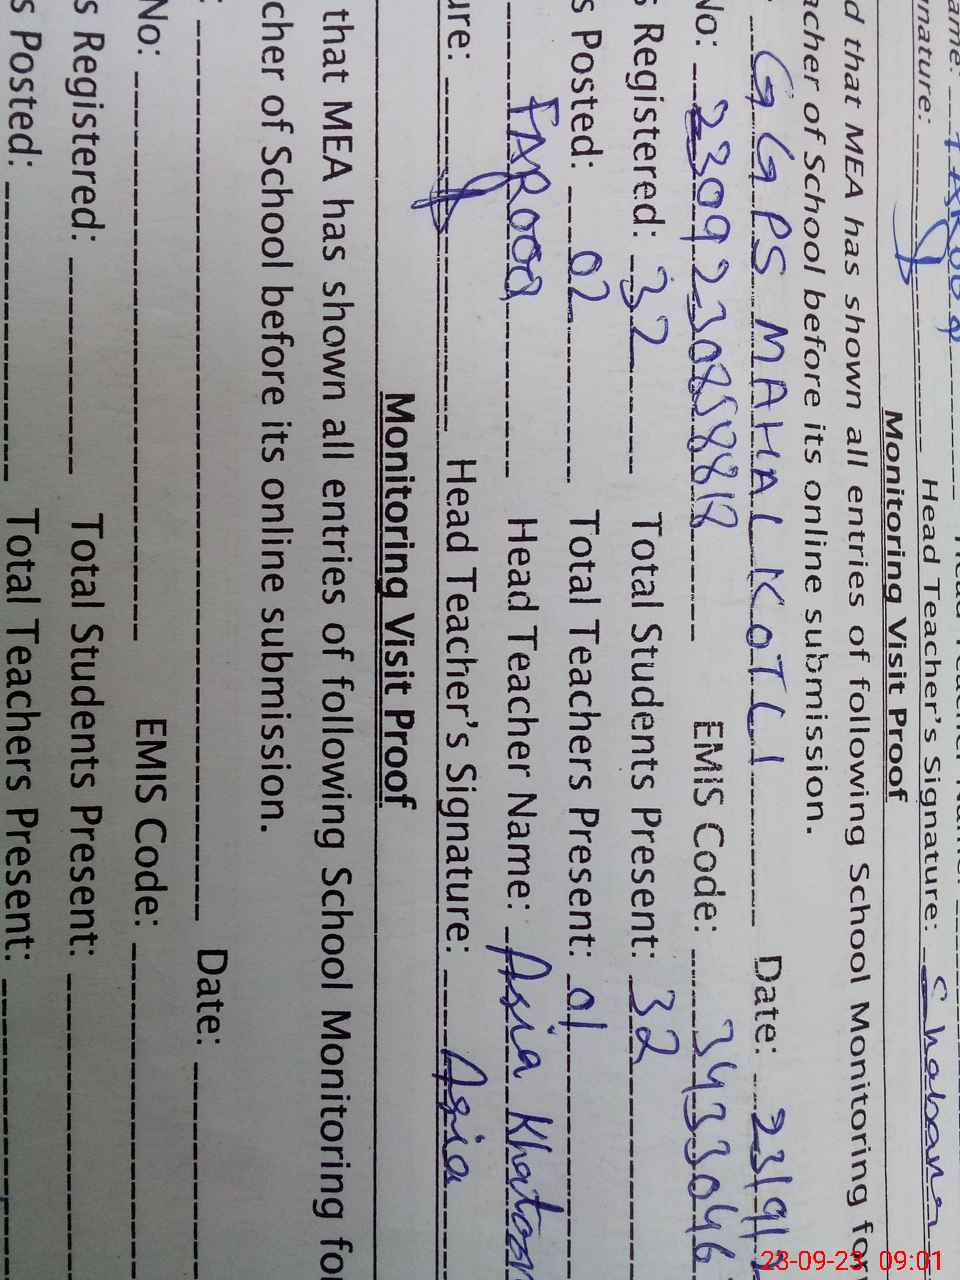 ame: FAROOQ Head Teacher Name:
gnature: Head Teacher's Signature: Shabana
Monitoring Visit Proof
d that MEA has shown all entries of following School Monitoring for
acher of School before its online submission.
GGPS MAHAL KOTLI Date: 23/9/2
No: 2309223085818 EMIS Code: 3433046
s Registered: 32 Total Students Present: 32
s Posted: 02 Total Teachers Present: 01
FAROOQ Head Teacher Name: Asia Khatoon
ure: Head Teacher's Signature: Asia
Monitoring Visit Proof
that MEA has shown all entries of following School Monitoring for
cher of School before its online submission.
: Date:
No: EMIS Code:
s Registered: Total Students Present:
s Posted: Total Teachers Present:
23-09-23 09:01